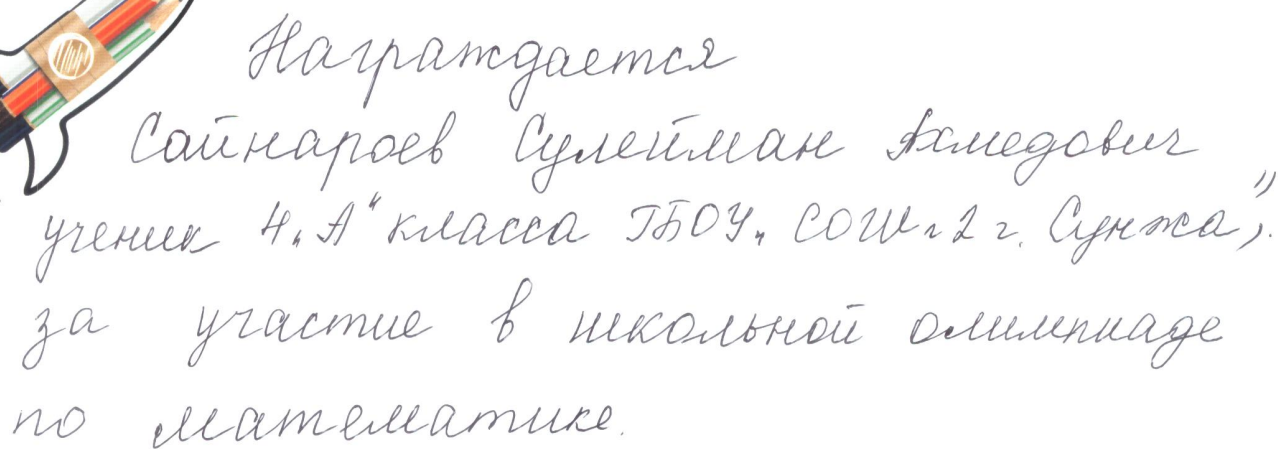 Награждается
Сайнароев Сулейман Ахмедович
ученик 4 „А" класса ГБОУ „ СОШ № 2 г. Сунжа",
за участие в школьной олимпиаде
по математике.